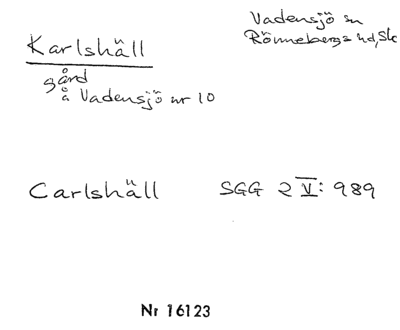 Karlshäll
gård
å Vadensjö nr 10
Vadensjö sn
Rönnebergs hd, Sk
Carlshäll SGG 2 V: 989
Nr 16123